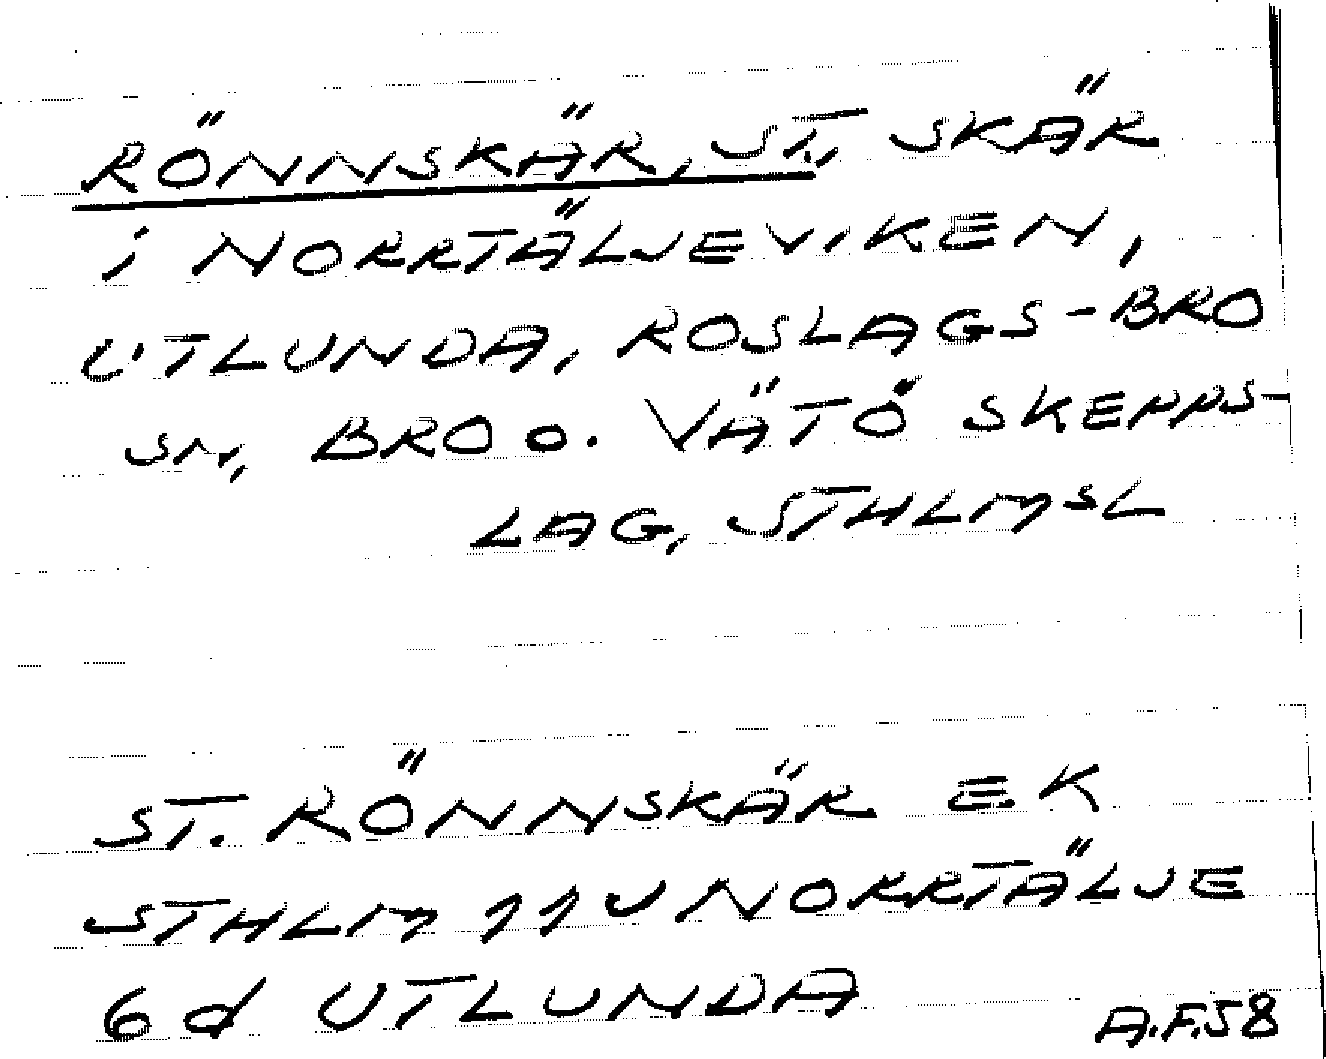 RÖNNSKÄR, ST., SKÄR
i NORRTÄLJEVIKEN,
UTLUNDA, ROSLAGS-BRO
SN, BRO O. VÄTÖ SKEPPS-
LAG, STHLMSL
ST. RÖNNSKÄR E.K
STHLM 11 J NORRTÄLJE
6 d UTLUNDA
A.F.58